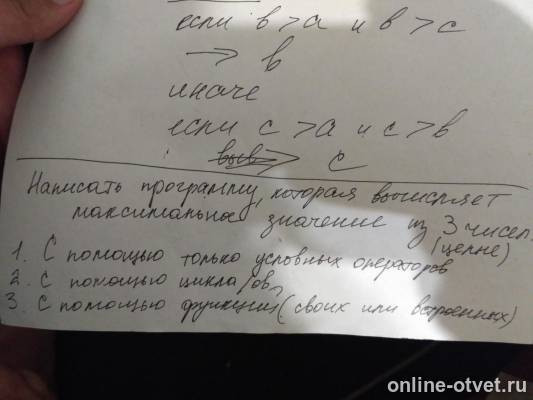 если b > a и b > c
→ b
иначе
если c > a и c > b
→ c
Написать программу, которая вычисляет
максимальное значение из 3 чисел.
(целые)
1. С помощью только условных операторов
2. С помощью цикла/ов,
3. С помощью функции (своих или встроенных)
online-otvet.ru